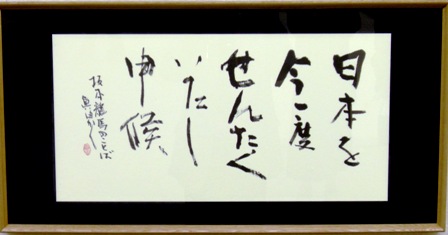 日本を
今一度
せんたく
いたし
申候
坂本龍馬のことば